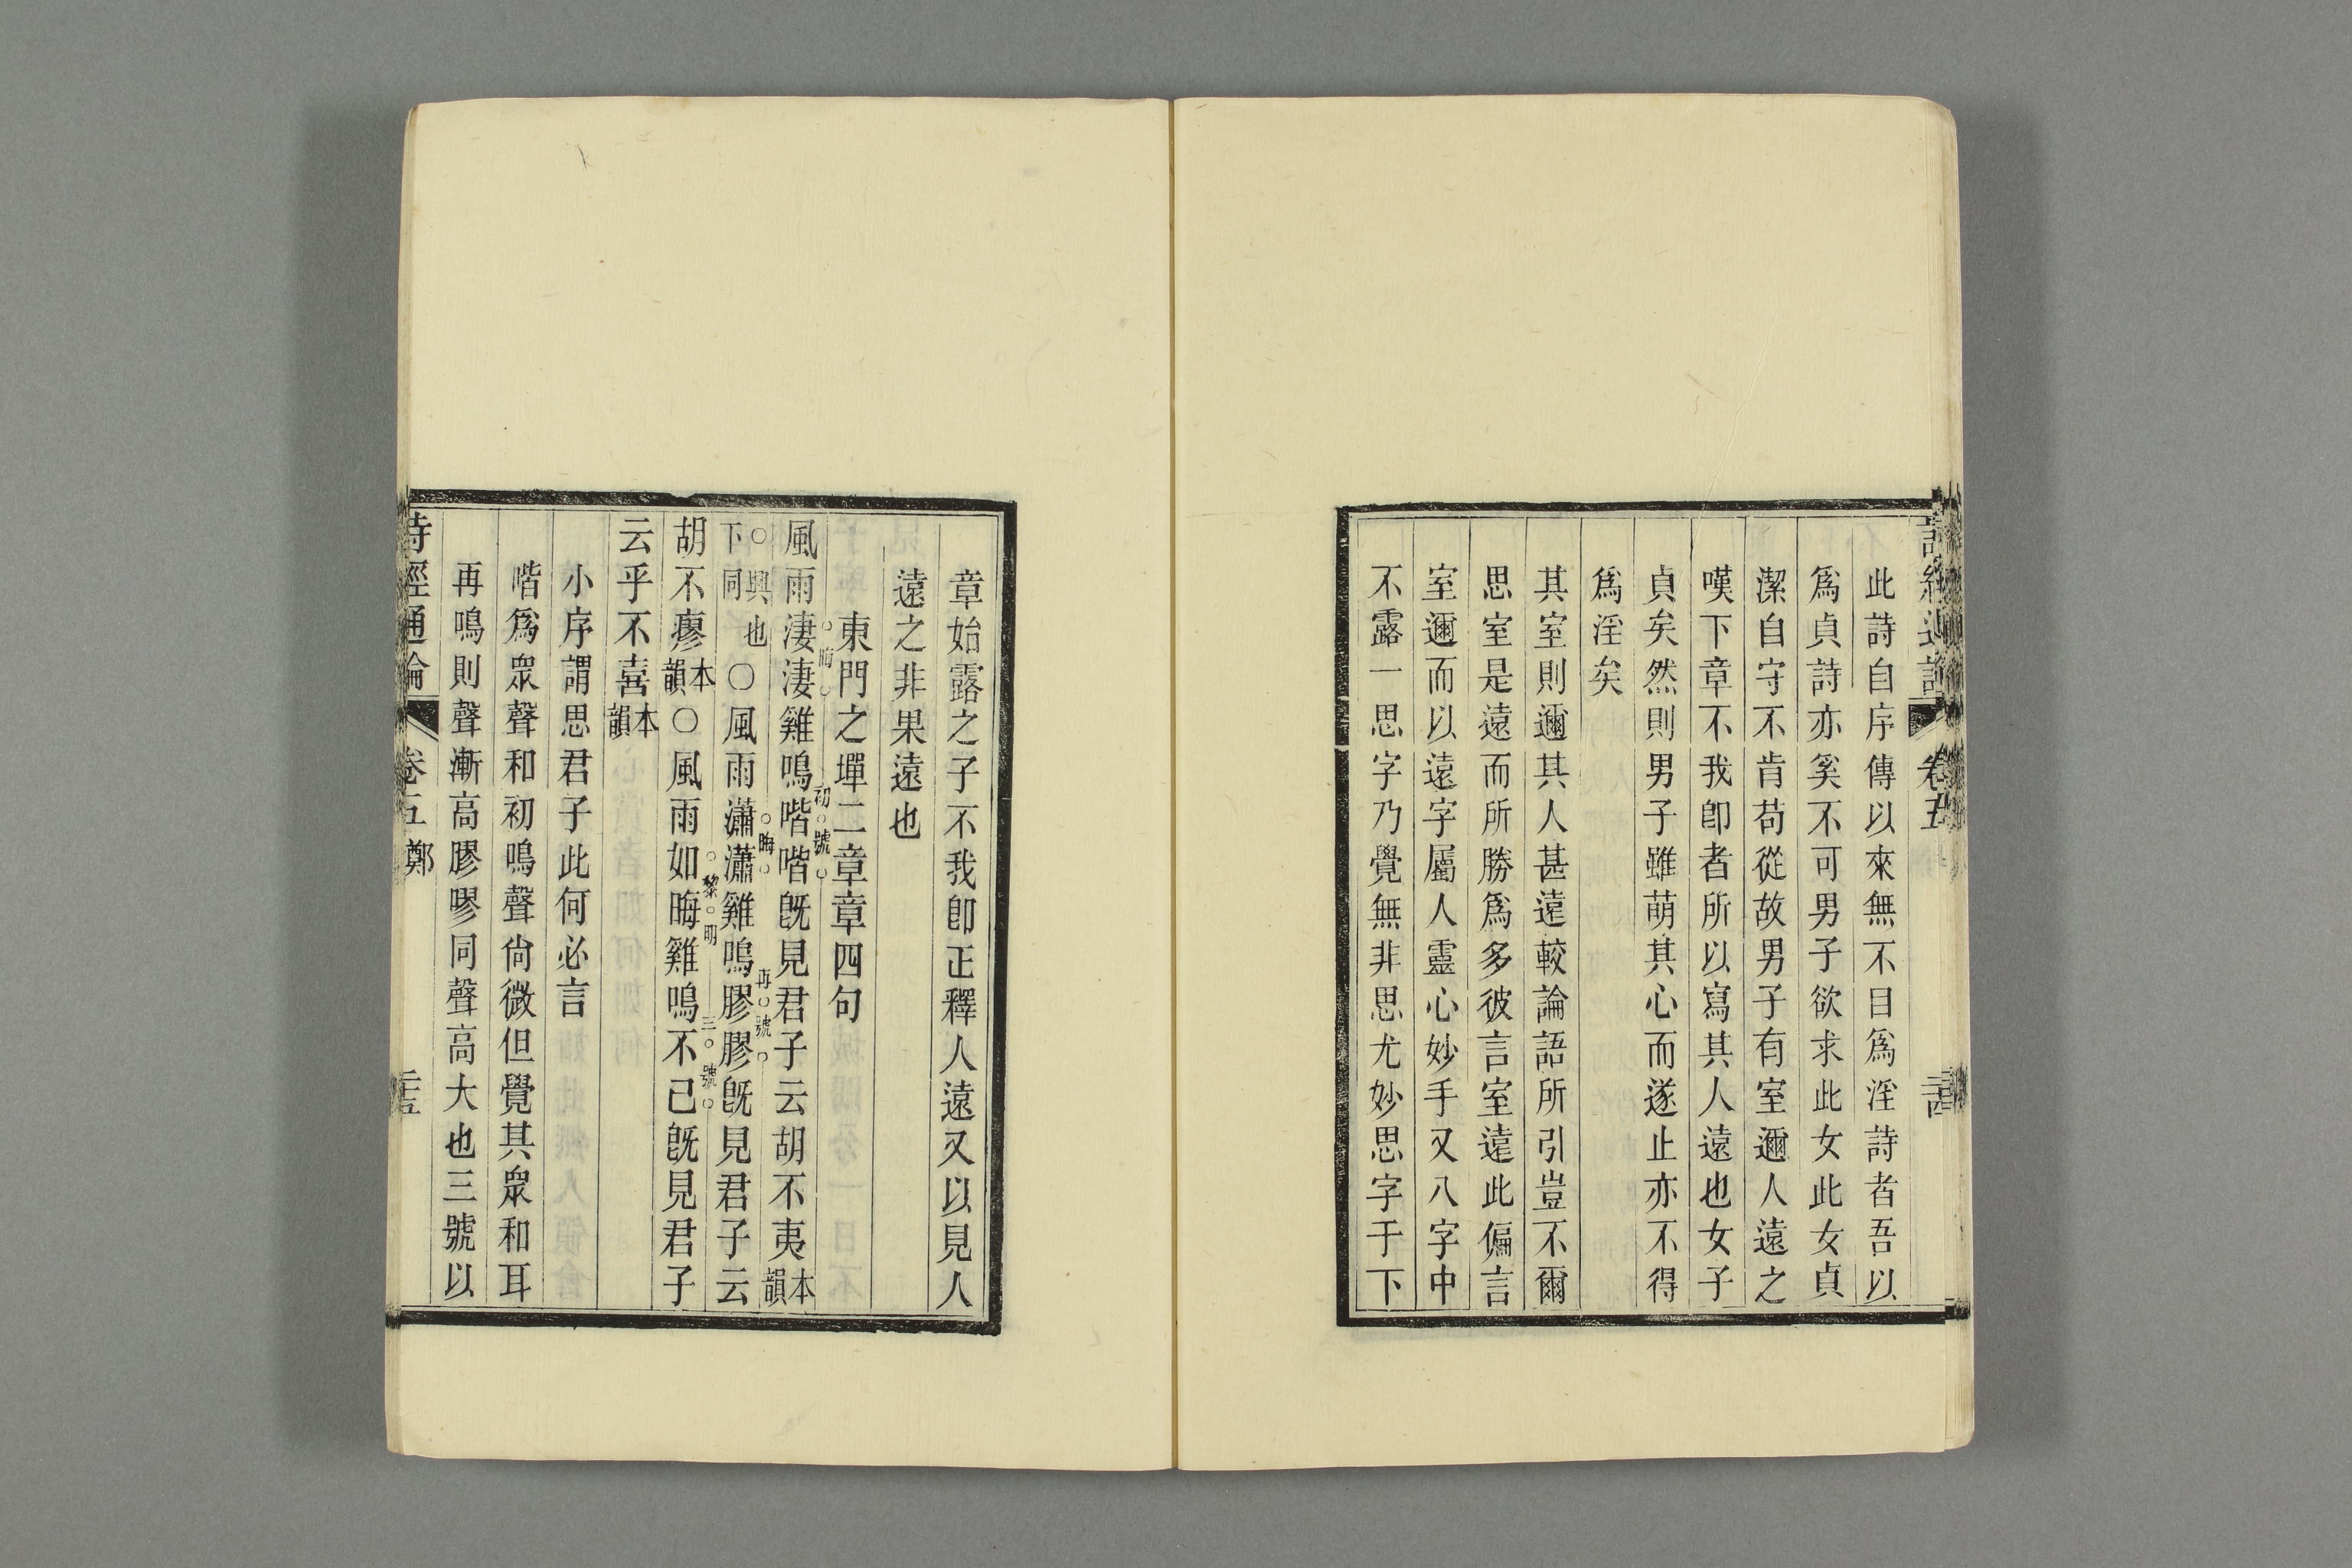 詩經通論 卷五
此詩自序傳以來無不目爲淫詩者吾以
爲貞詩亦奚不可男子欲求此女此女貞
潔自守不肯苟從故男子有室邇人遠之
嘆下章不我卽者所以寫其人遠也女子
貞矣然則男子雖萌其心而遂止亦不得
爲淫矣
其室則邇其人甚遠較論語所引豈不爾
思室是遠而所勝爲多彼言室遠此偏言
室邇而以遠字屬人靈心妙手又八字中
不露一思字乃覺無非思尤妙思字于下
章始露之子不我卽正釋人遠又以見人
遠之非果遠也
東門之墠二章章四句
○晦○ 初○號○
風雨淒淒雞鳴喈喈旣見君子云胡不夷本韻
○興也下同○風雨瀟瀟雞鳴膠膠旣見君子云
○晦○ 再○號○
胡不瘳本韻○風雨如晦雞鳴不已旣見君子
○黎○明 三○號○
云乎不喜本韻
小序謂思君子此何必言
喈爲眾聲和初鳴聲尙微但覺其眾和耳
再鳴則聲漸高膠膠同聲高大也三號以
詩經通論 卷五 鄭 二十五